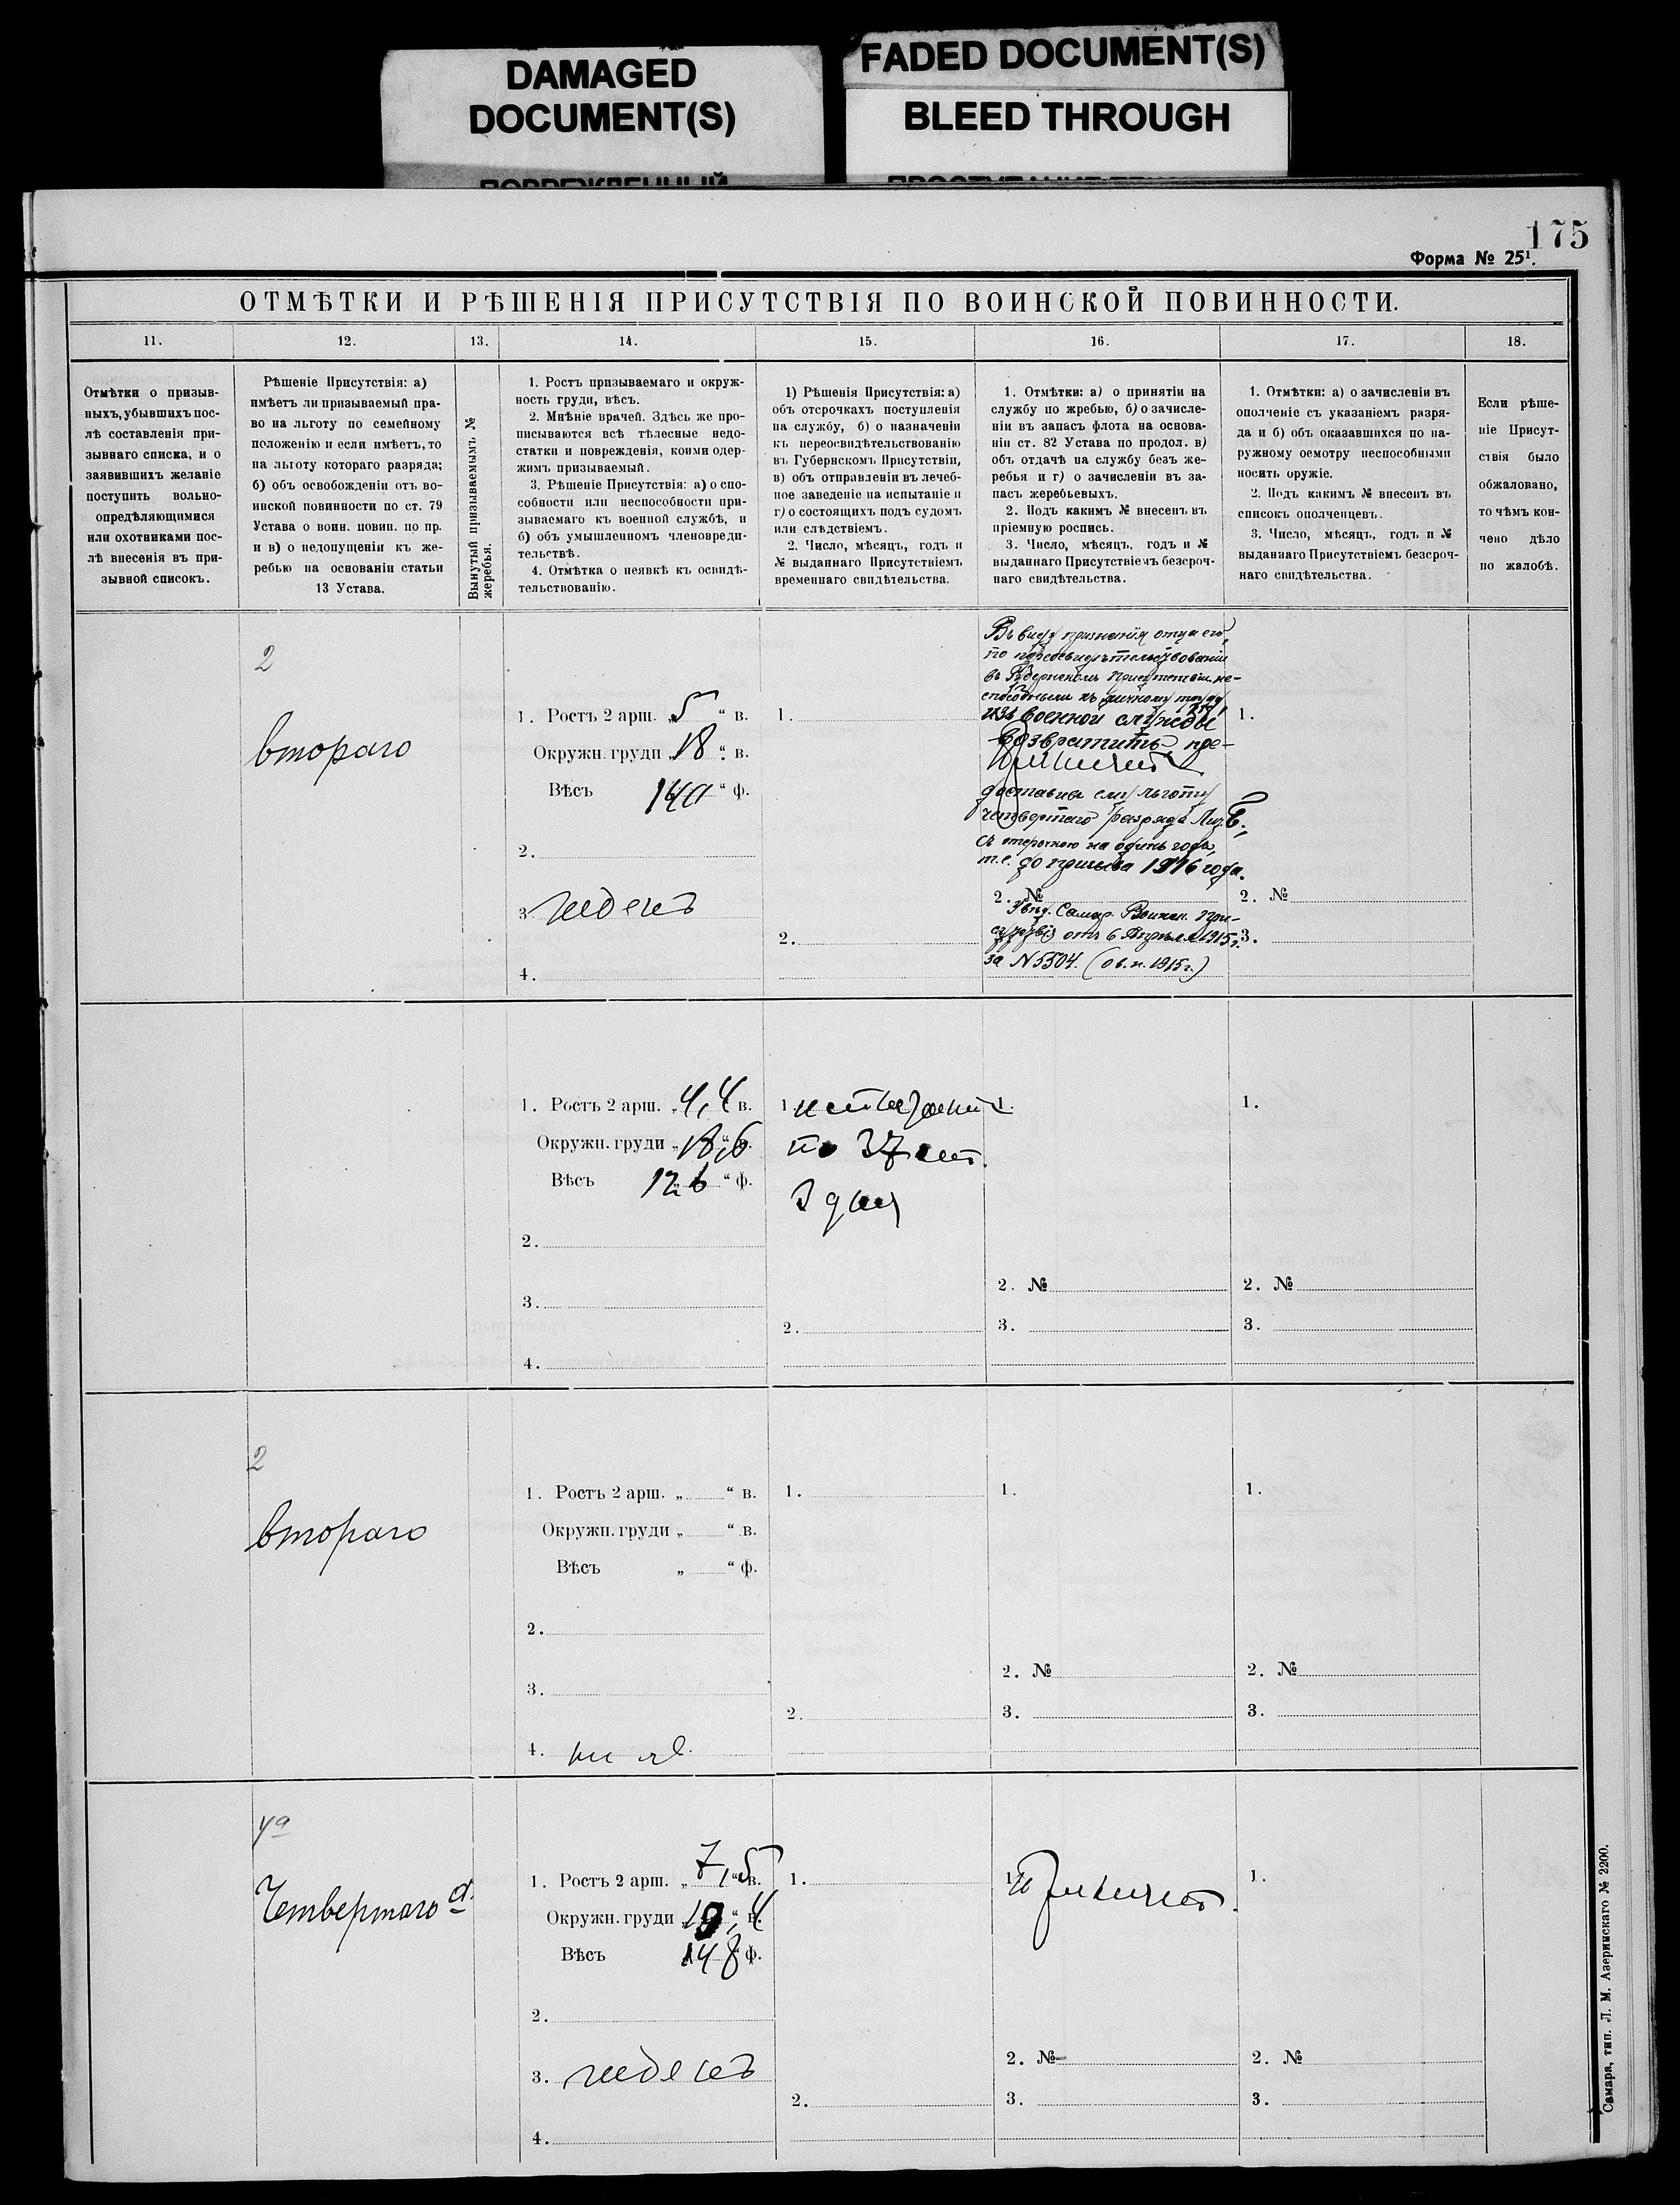 DAMAGED
DOCUMENT(S)
FADED DOCUMENT(S)
BLEED THROUGH
175
Форма № 25¹.
ОТМѢТКИ И РѢШЕНІЯ ПРИСУТСТВІЯ ПО ВОИНСКОЙ ПОВИННОСТИ.
11.
12.
13.
14.
15.
16.
17.
18.
Отмѣтки о призыв-
ныхъ, убывшихъ пос-
лѣ составленія при-
зывнаго списка, и о
заявившихъ желаніе
поступить вольно-
опредѣляющимися
или охотниками пос-
лѣ внесенія въ при-
зывной списокъ.
Рѣшеніе Присутствія: а)
имѣетъ ли призываемый пра-
во на льготу по семейному
положенію и если имѣетъ, то
на льготу котораго разряда;
б) объ освобожденіи отъ во-
инской повинности по ст. 79
Устава о воин. повин. по пр.
и в) о недопущеніи къ же-
ребью на основаніи статьи
13 Устава.
Вынутый призываемымъ №
жеребья.
1. Ростъ призываемаго и окруж-
ность груди, вѣсъ.
2. Мнѣніе врачей. Здѣсь же про-
писываются всѣ тѣлесные недо-
статки и поврежденія, коими одер-
жимъ призываемый.
3. Рѣшеніе Присутствія: а) о спо-
собности или неспособности при-
зываемаго къ военной службѣ, и
б) объ умышленномъ членовреди-
тельствѣ.
4. Отмѣтка о неявкѣ къ освидѣ-
тельствованію.
1) Рѣшенія Присутствія: а)
объ отсрочкахъ поступленія
на службу, б) о назначеніи
къ переосвидѣтельствованію
въ Губернскомъ Присутствіи,
в) объ отправленіи въ лечеб-
ное заведеніе на испытаніе и
г) о состоящихъ подъ судомъ
или слѣдствіемъ.
2. Число, мѣсяцъ, годъ и
№ выданнаго Присутствіемъ
временнаго свидѣтельства.
1. Отмѣтки: а) о принятіи на
службу по жребью, б) о зачисле-
ніи въ запасъ флота на основа-
ніи ст. 82 Устава по продол. в)
объ отдачѣ на службу безъ же-
ребья и г) о зачисленіи въ за-
пасъ жеребьевыхъ.
2. Подъ какимъ № внесенъ въ
пріемную роспись.
3. Число, мѣсяцъ, годъ и №
выданнаго Присутствіемъ безсроч-
наго свидѣтельства.
1. Отмѣтки: а) о зачисленіи въ
ополченіе съ указаніемъ разря-
да и б) объ оказавшихся по на-
ружному осмотру неспособными
носить оружіе.
2. Подъ какимъ № внесенъ въ
списокъ ополченцевъ.
3. Число, мѣсяцъ, годъ и №
выданнаго Присутствіемъ безсроч-
наго свидѣтельства.
Если рѣше-
ніе Присут-
ствія было
обжаловано,
то чѣмъ кон-
чено дѣло
по жалобѣ.
2
втораго
1. Ростъ 2 арш. „ 5 “ в.
Окружн. груди „ 18 “ в.
Вѣсъ 140 “ ф.
2.
3. годенъ
4.
1.
2.
Въ виду признанія отца его,
по переосвидѣтельствованіи
въ Губернскомъ Присутствіи не-
способнымъ къ личному труду,
изъ военной службы
возвратить пре-
Принятъ
доставивъ ему льготу
четвертаго разряда Лит. Б.,
съ отсрочкою на одинъ годъ,
т.е. до призыва 1916 года.
2. №
Увѣд. Самар. Воинск. При-
сутствія отъ 6 Апрѣля 1915 г.
за N 5504. (о в.п. 1915 г.)
1.
2. №
3.
1. Ростъ 2 арш. „ 4,4 в.
Окружн. груди „ 18,6 в.
Вѣсъ 126 “ ф.
2.
3.
4.
1. испытанію
по 37 ст.
3 дня
2.
1.
2. №
3.
1.
2. №
3.
2
втораго
1. Ростъ 2 арш. „ “ в.
Окружн. груди „ “ в.
Вѣсъ „ “ ф.
2.
3.
4. не яв.
1.
2.
1.
2. №
3.
1.
2. №
3.
4а
Четвертаго а.
1. Ростъ 2 арш. „ 7,5 “ в.
Окружн. груди „ 19,4 “ в.
Вѣсъ 148 ф.
2.
3. годенъ
4.
1.
2.
1. Принятъ.
2. №
3.
1.
2. №
3.
Самара, тип. Л. М. Азеринскаго № 2200.